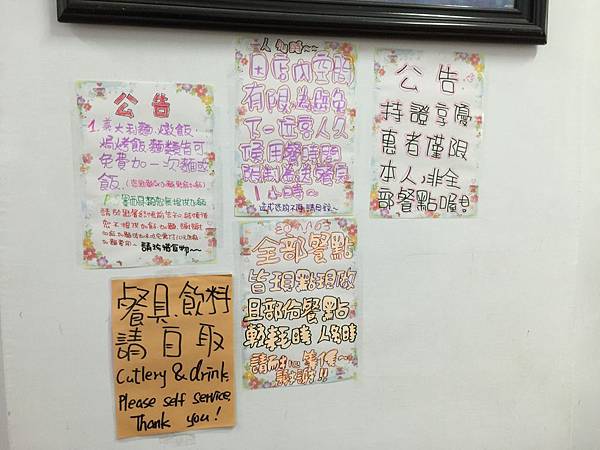 公告
1.義大利麵.燉飯.
焗烤飯.麵類皆可
免費加一次麵或
飯.
請珍惜食物~~
人多時~~
因店內空間
有限,為避免
下一位客人久
候用餐時間
限制為送餐后
1小時~
公告
持證享優
惠者僅限
本人,非全
部餐點喔!
全部餐點
皆現點現做
且部份餐點
較耗時 人多時
請耐心等候~
謝謝!!
餐具.飲料
請自取
Cutlery & drink,
Please self service
Thank you!